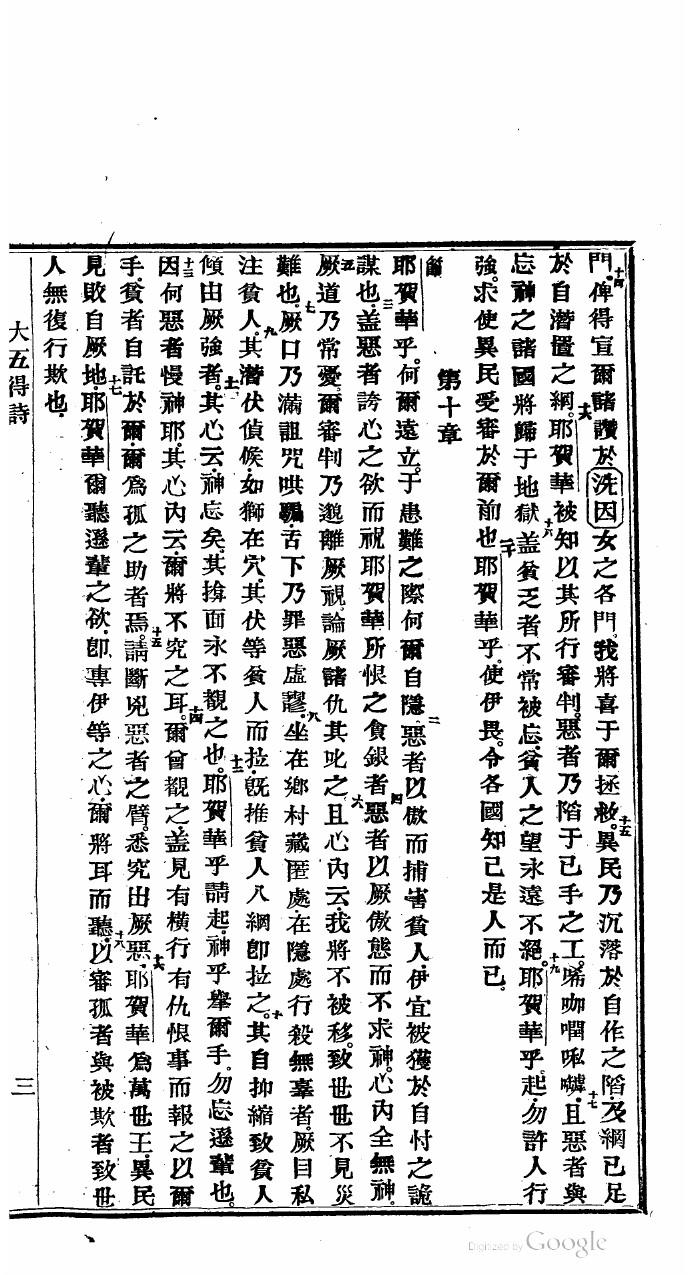 門。俾得宣爾諸讚於洗因女之各門。我將喜于爾拯救。異民乃沉落於自作之陷。及網已足
於自潛置之網。耶賀華被知以其所行審判。惡者乃陷于己手之工。唏咖𠾑唦𡃤。且惡者與
忘神之諸國將歸于地獄。盖貧乏者不常被忘。貧人之望永遠不絕。耶賀華乎。起。勿許人行
強。求使異民受審於爾前也。耶賀華乎。使伊畏。令各國知己是人而已。
第十章
耶賀華乎。何爾遠立。于患難之際何爾自隱。惡者以傲而捕害貧人。伊宜被獲於自忖之詭
謀也。盖惡者誇心之欲而祝耶賀華所恨之貪銀者。惡者以厥傲態而不求神。心內全無神。
厥道乃常憂。爾審判乃邈離厥視。論厥諸仇其叱之。且心內云。我將不被移。致世世不見災
難也。厥口乃滿詛咒哄騙。舌下乃罪惡虛謬。坐在鄉村藏匿處。在隱處行殺無辜者。厥目私
注貧人。其潛伏偵候。如獅在穴。其伏等貧人而拉。旣推貧人入網卽拉之。其自抑縮致貧人
傾由厥強者。其心云。神忘矣。其揜面永不觀之也。耶賀華乎請起。神乎舉爾手。勿忘遜輩也。
因何惡者慢神耶。其心內云。爾將不究之耳。爾曾觀之。盖見有橫行有仇恨事而報之以爾
手。貧者自託於爾。爾為孤之助者焉。請斷兇惡者之臂。悉究出厥惡。耶賀華為萬世王。異民
見敗自厥地。耶賀華爾聽遜輩之欲。卽專伊等之心。爾將耳而聽。以審孤者與被欺者致世
人無復行欺也。
大五得詩
三
Digitized by Google